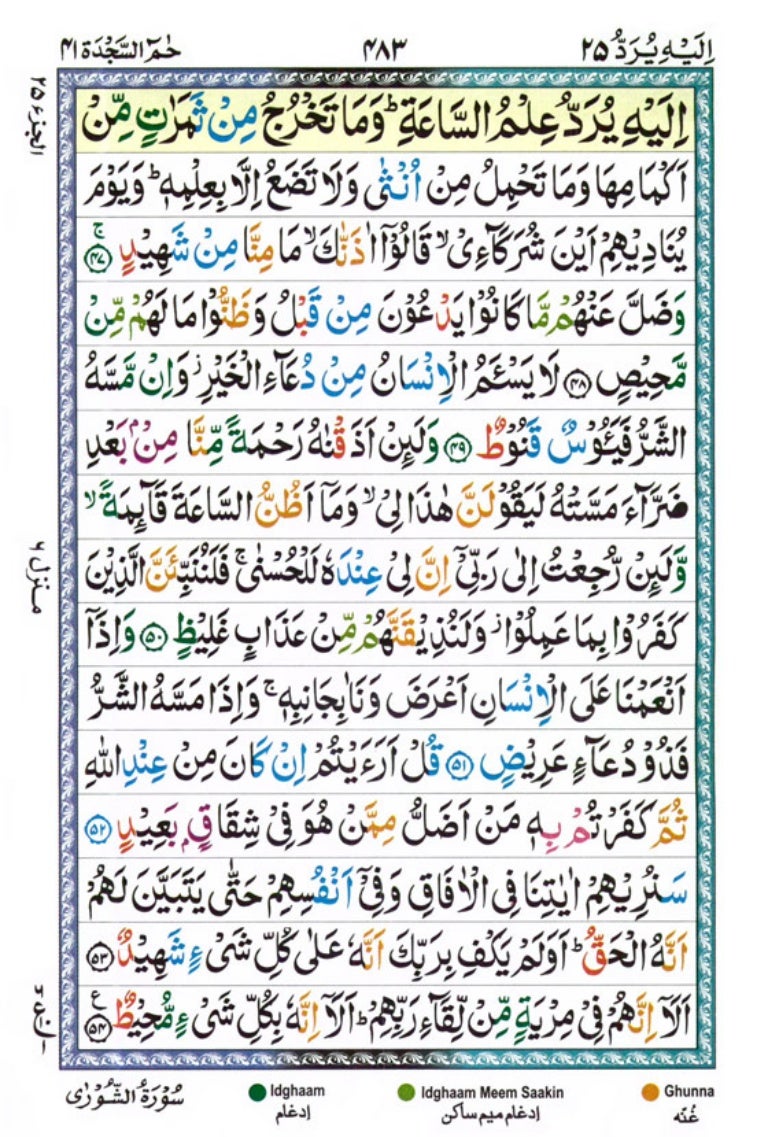 اِلَيْهِ يُرَدُّ ٢٥
٤٨٣
حٰمٓ السَّجْدَة ٤١
الجزء ٢٥
اِلَيْهِ يُرَدُّ عِلْمُ السَّاعَةِ ؕ وَمَا تَخْرُجُ مِنْ ثَمَرٰتٍ مِّنْ
اَكْمَامِهَا وَمَا تَحْمِلُ مِنْ اُنْثٰى وَلَا تَضَعُ اِلَّا بِعِلْمِهٖ ؕ وَيَوْمَ
يُنَادِيْهِمْ اَيْنَ شُرَكَآءِىْ ۙ قَالُوْٓا اٰذَنّٰكَ ۙ مَا مِنَّا مِنْ شَهِيْدٍ ۚ ﴿٤٧﴾
وَضَلَّ عَنْهُمْ مَّا كَانُوْا يَدْعُوْنَ مِنْ قَبْلُ وَظَنُّوْا مَا لَهُمْ مِّنْ
مَّحِيْصٍ ﴿٤٨﴾ لَا يَسْـَٔمُ الْاِنْسَانُ مِنْ دُعَآءِ الْخَيْرِ ز وَاِنْ مَّسَّهُ
الشَّرُّ فَيَـُٔوْسٌ قَنُوْطٌ ﴿٤٩﴾ وَلَئِنْ اَذَقْنٰهُ رَحْمَةً مِّنَّا مِنْۢ بَعْدِ
ضَرَّآءَ مَسَّتْهُ لَيَقُوْلَنَّ هٰذَا لِىْ ۙ وَمَآ اَظُنُّ السَّاعَةَ قَآئِمَةً ۙ
وَّلَئِنْ رُّجِعْتُ اِلٰى رَبِّىْٓ اِنَّ لِىْ عِنْدَهٗ لَلْحُسْنٰى ۚ فَلَنُنَبِّئَنَّ الَّذِيْنَ
كَفَرُوْا بِمَا عَمِلُوْا ز وَلَنُذِيْقَنَّهُمْ مِّنْ عَذَابٍ غَلِيْظٍ ﴿٥٠﴾ وَاِذَآ
اَنْعَمْنَا عَلَى الْاِنْسَانِ اَعْرَضَ وَنَاٰ بِجَانِبِهٖ ۚ وَاِذَا مَسَّهُ الشَّرُّ
فَذُوْ دُعَآءٍ عَرِيْضٍ ﴿٥١﴾ قُلْ اَرَءَيْتُمْ اِنْ كَانَ مِنْ عِنْدِ اللّٰهِ
ثُمَّ كَفَرْتُمْ بِهٖ مَنْ اَضَلُّ مِمَّنْ هُوَ فِىْ شِقَاقٍۢ بَعِيْدٍ ﴿٥٢﴾
سَنُرِيْهِمْ اٰيٰتِنَا فِى الْاٰفَاقِ وَفِىْٓ اَنْفُسِهِمْ حَتّٰى يَتَبَيَّنَ لَهُمْ
اَنَّهُ الْحَقُّ ؕ اَوَلَمْ يَكْفِ بِرَبِّكَ اَنَّهٗ عَلٰى كُلِّ شَىْءٍ شَهِيْدٌ ﴿٥٣﴾
اَلَآ اِنَّهُمْ فِىْ مِرْيَةٍ مِّنْ لِّقَآءِ رَبِّهِمْ ؕ اَلَآ اِنَّهٗ بِكُلِّ شَىْءٍ مُّحِيْطٌ ﴿٥٤﴾ ع
منزل ٦
سُوْرَةُ الشُّوْرٰى
Idghaam
اِدغام
Idghaam Meem Saakin
اِدغام ميم ساكن
Ghunna
غُنّه